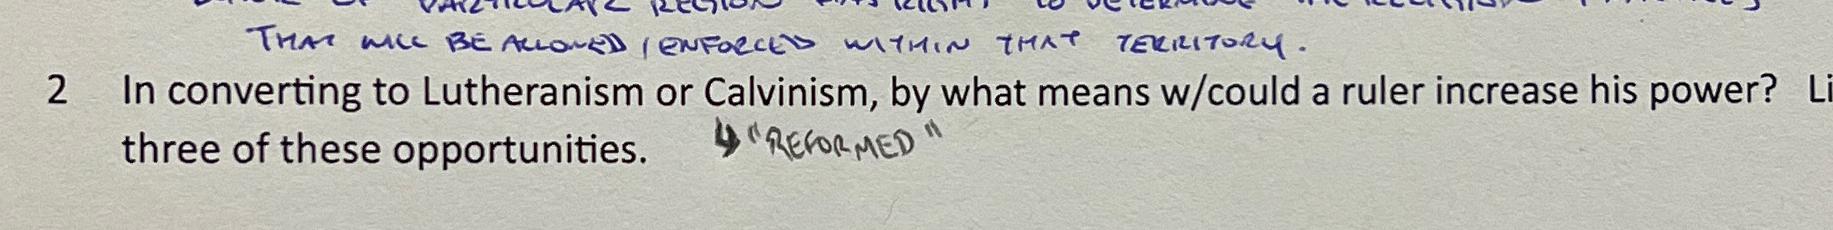 OF PARTICULAR REGION HAS RIGHT TO DETERMINE THE RELIGIOUS
THAT WILL BE ALLOWED / ENFORCED WITHIN THAT TERRITORY.
2 In converting to Lutheranism or Calvinism, by what means w/could a ruler increase his power? Li
three of these opportunities. ↳ "REFORMED"